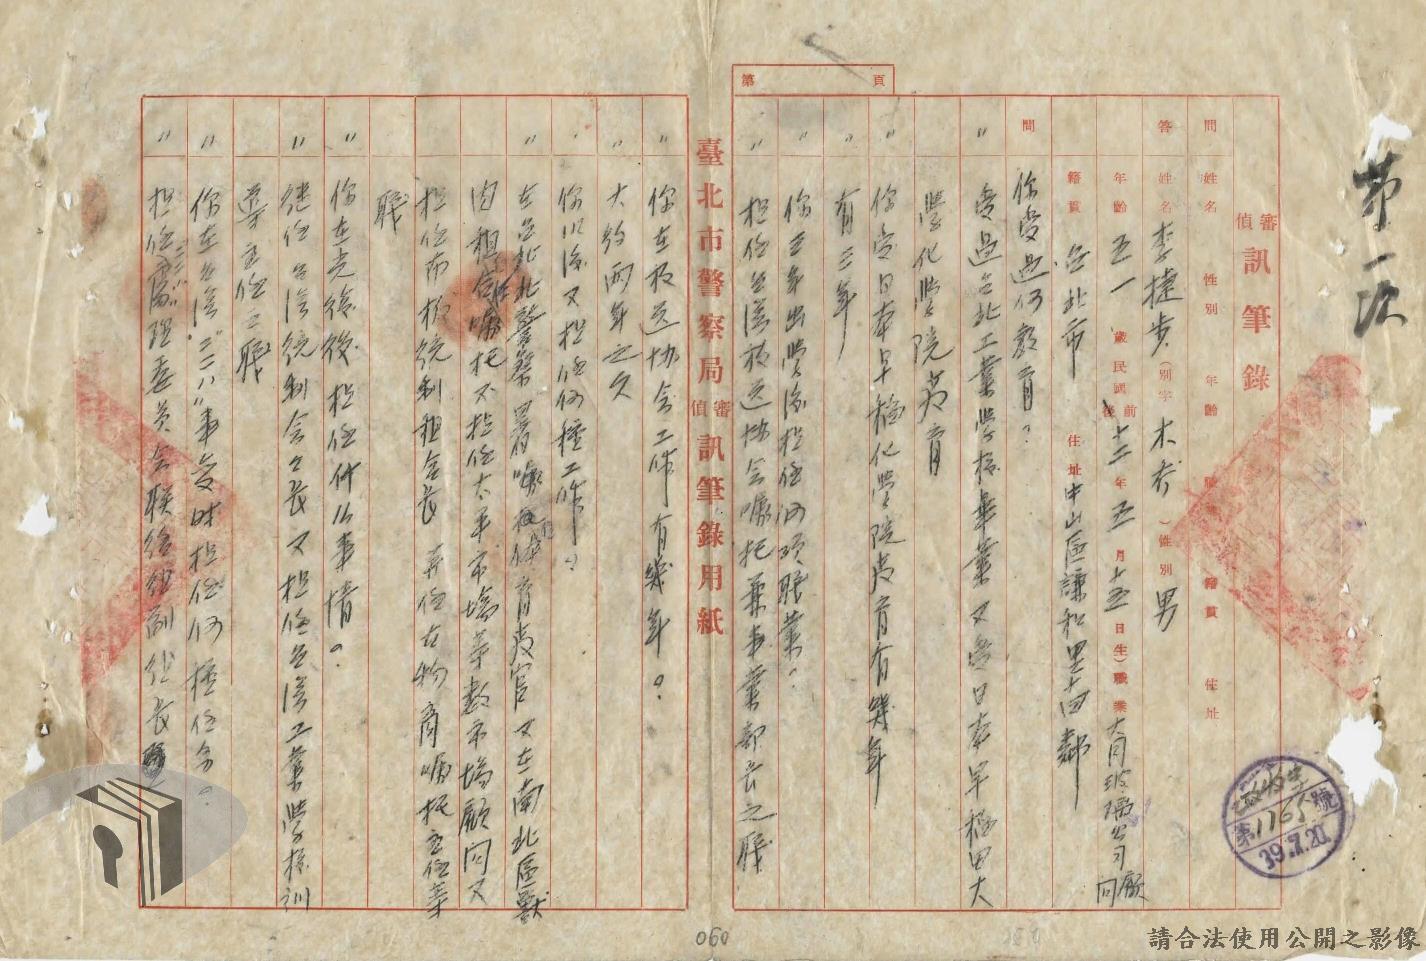 第一次
偵審訊筆錄
問 姓名 性別 年齡 職業 籍貫 住址
答 姓名 李捷步（別字 木乔 ）性別 男
年齡 五一 歲民國前後十三年五月十五日生）職業 大同玻璃公司廠向
籍貫 台北市 住址 中山區謙和里十四鄰
問 你受過何教育？
〃 受過台北工業學校畢業又受日本早稻田大
學化學院教育
〃 你受日本早稲化學院教育有幾年
〃 有三年
〃 你三年出學後担任何項職業？
〃 担任台湾放送協會囑托兼事業部長之職
第 頁
臺北市警察局偵審訊筆錄用紙
〃 你在放送协会工作有幾年？
〃 大約兩年之久
〃 你以後又担任何種工作？
〃 在台北北警察署囑 体育教官又在南北區獸
肉組合囑托又担任太平市場等數市場顧問又
担任布 統制組合長 并任在物商囑托主任等
職
〃 你在光復後担任什么事情？
〃 継任台湾統制会会長又担任台湾工業學校訓
導主任之職
〃 你在台湾"二二八"事变时担任何種任务？
〃 担任 處理委員会联络组副组长
政收字第1765號
39.7.20
060
請合法使用公開之影像